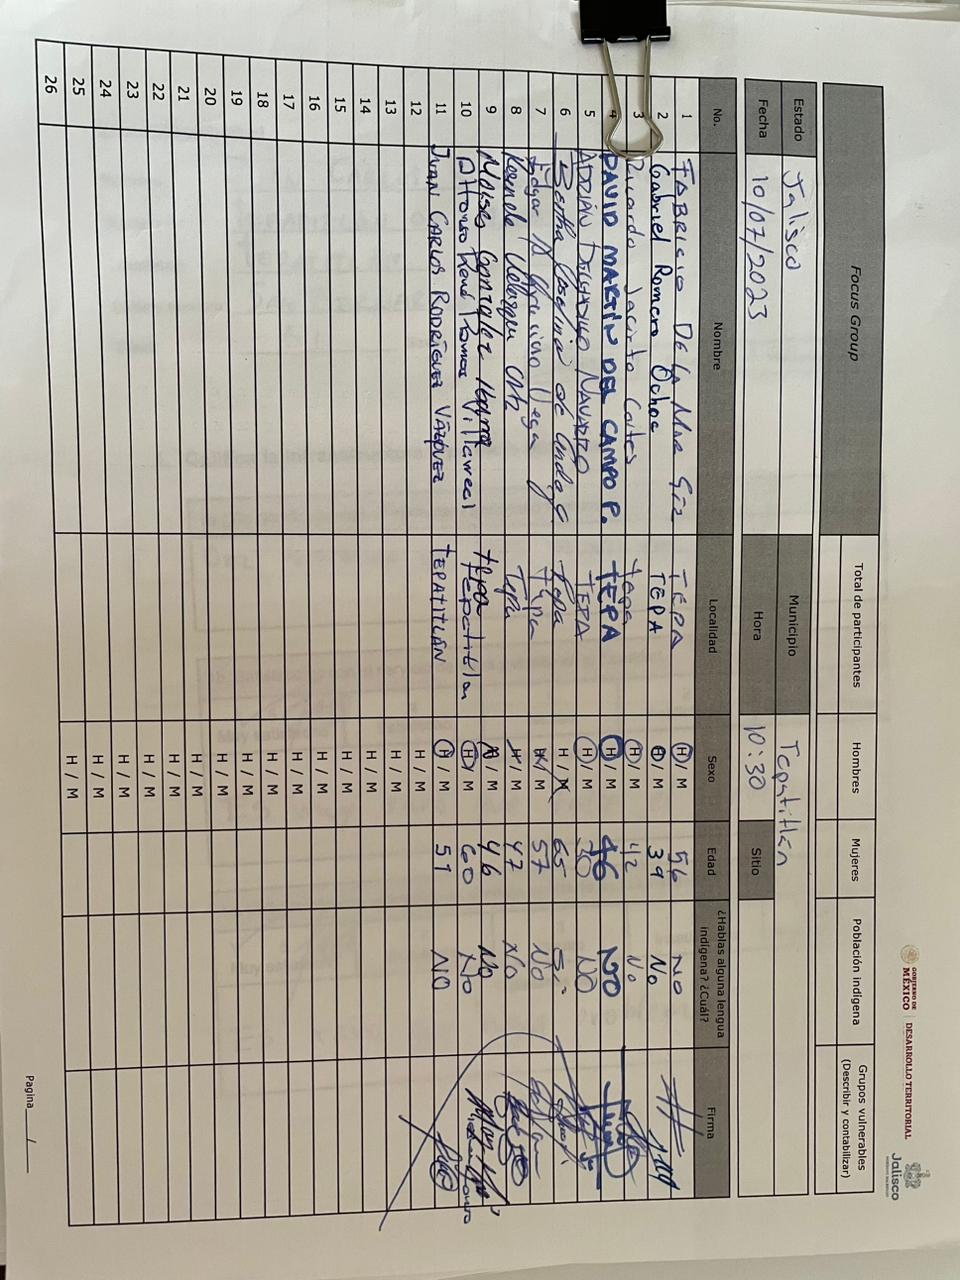 GOBIERNO DE MÉXICO | DESARROLLO TERRITORIAL
Jalisco
Focus Group
Total de participantes
Hombres
Mujeres
Población indígena
Grupos vulnerables (Describir y contabilizar)
Estado Jalisco Municipio Tepatitlán
Fecha 10/07/2023 Hora 10:30 Sitio
No. Nombre Localidad Sexo Edad ¿Hablas alguna lengua indígena? ¿Cuál? Firma
1 FABRICIO DE LA MAR TEPA H / M 56 NO
2 Gabriel Romero Ochoa TEPA H / M 39 No
3 Ricardo Jacinto Cortes Tepa H / M 42 No
4 DAVID MARTÍN DEL CAMPO P. TEPA H / M 46 NO
5 ADRIÁN NAVARRO TEPA H / M NO
6 Bertha de Anda G. Tepa H / M 65
7 Edgar Vega Tepa H / M 57 No
8 Tepa H / M 47 No
9 Moises Gonzalez Tepa H / M 46 No
10 René Tepatitlan H / M 60 No
11 JUAN CARLOS RODRÍGUEZ VÁZQUEZ TEPATITLÁN H / M 51 NO
12 H / M
13 H / M
14 H / M
15 H / M
16 H / M
17 H / M
18 H / M
19 H / M
20 H / M
21 H / M
22 H / M
23 H / M
24 H / M
25 H / M
26 H / M
Pagina 1